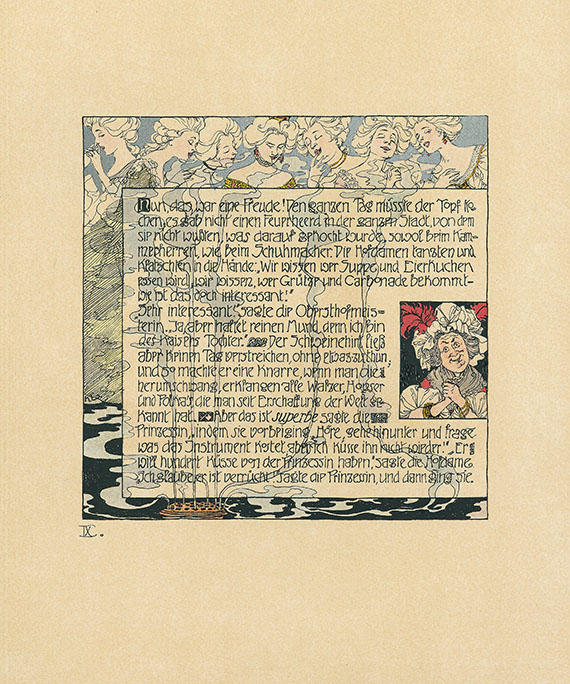 Nun, das war eine Freude! Den ganzen Tag müsste der Topf ko
chen; es gab nicht einen Feuerheerd in der ganzen Stadt, von dem
sie nicht wußten, was darauf gekocht wurde, sowol beim Kam-
merherrn, wie beim Schuhmacher. Die Hofdamen tanzten und
klatschten in die Hände: „Wir wissen wer Suppe und Eierkuchen
essen wird, wir wissen, wer Grütze und Carbonade bekommt-
wie ist das doch interessant!"
Sehr interessant!" sagte die Obersthofmeis=
terin. „Ja, aber haltet reinen Mund, denn ich bin
des Kaisers Tochter." Der Schweinehirt ließ
aber keinen Tag verstreichen, ohne etwas zu thun,
und so machte er eine Knarre, wenn man die
herumschwang, erklangen alle Walzer, Hopser
und Polkas, die man seit Erschaffung der Welt ge
kannt hat. „Aber das ist superbe" sagte die
Prinzessin, „indem sie vorbeiging. „Höre, gehe hinunter und frage
was das Instrument kotet, aber ich küsse ihn nicht wieder!" „Er
will hundert Küsse von der Prinzessin haben," sagte die Hofdame.
„Ich glaube er ist verrückt!" sagte die Prinzessin, und dann ging sie.
IX.